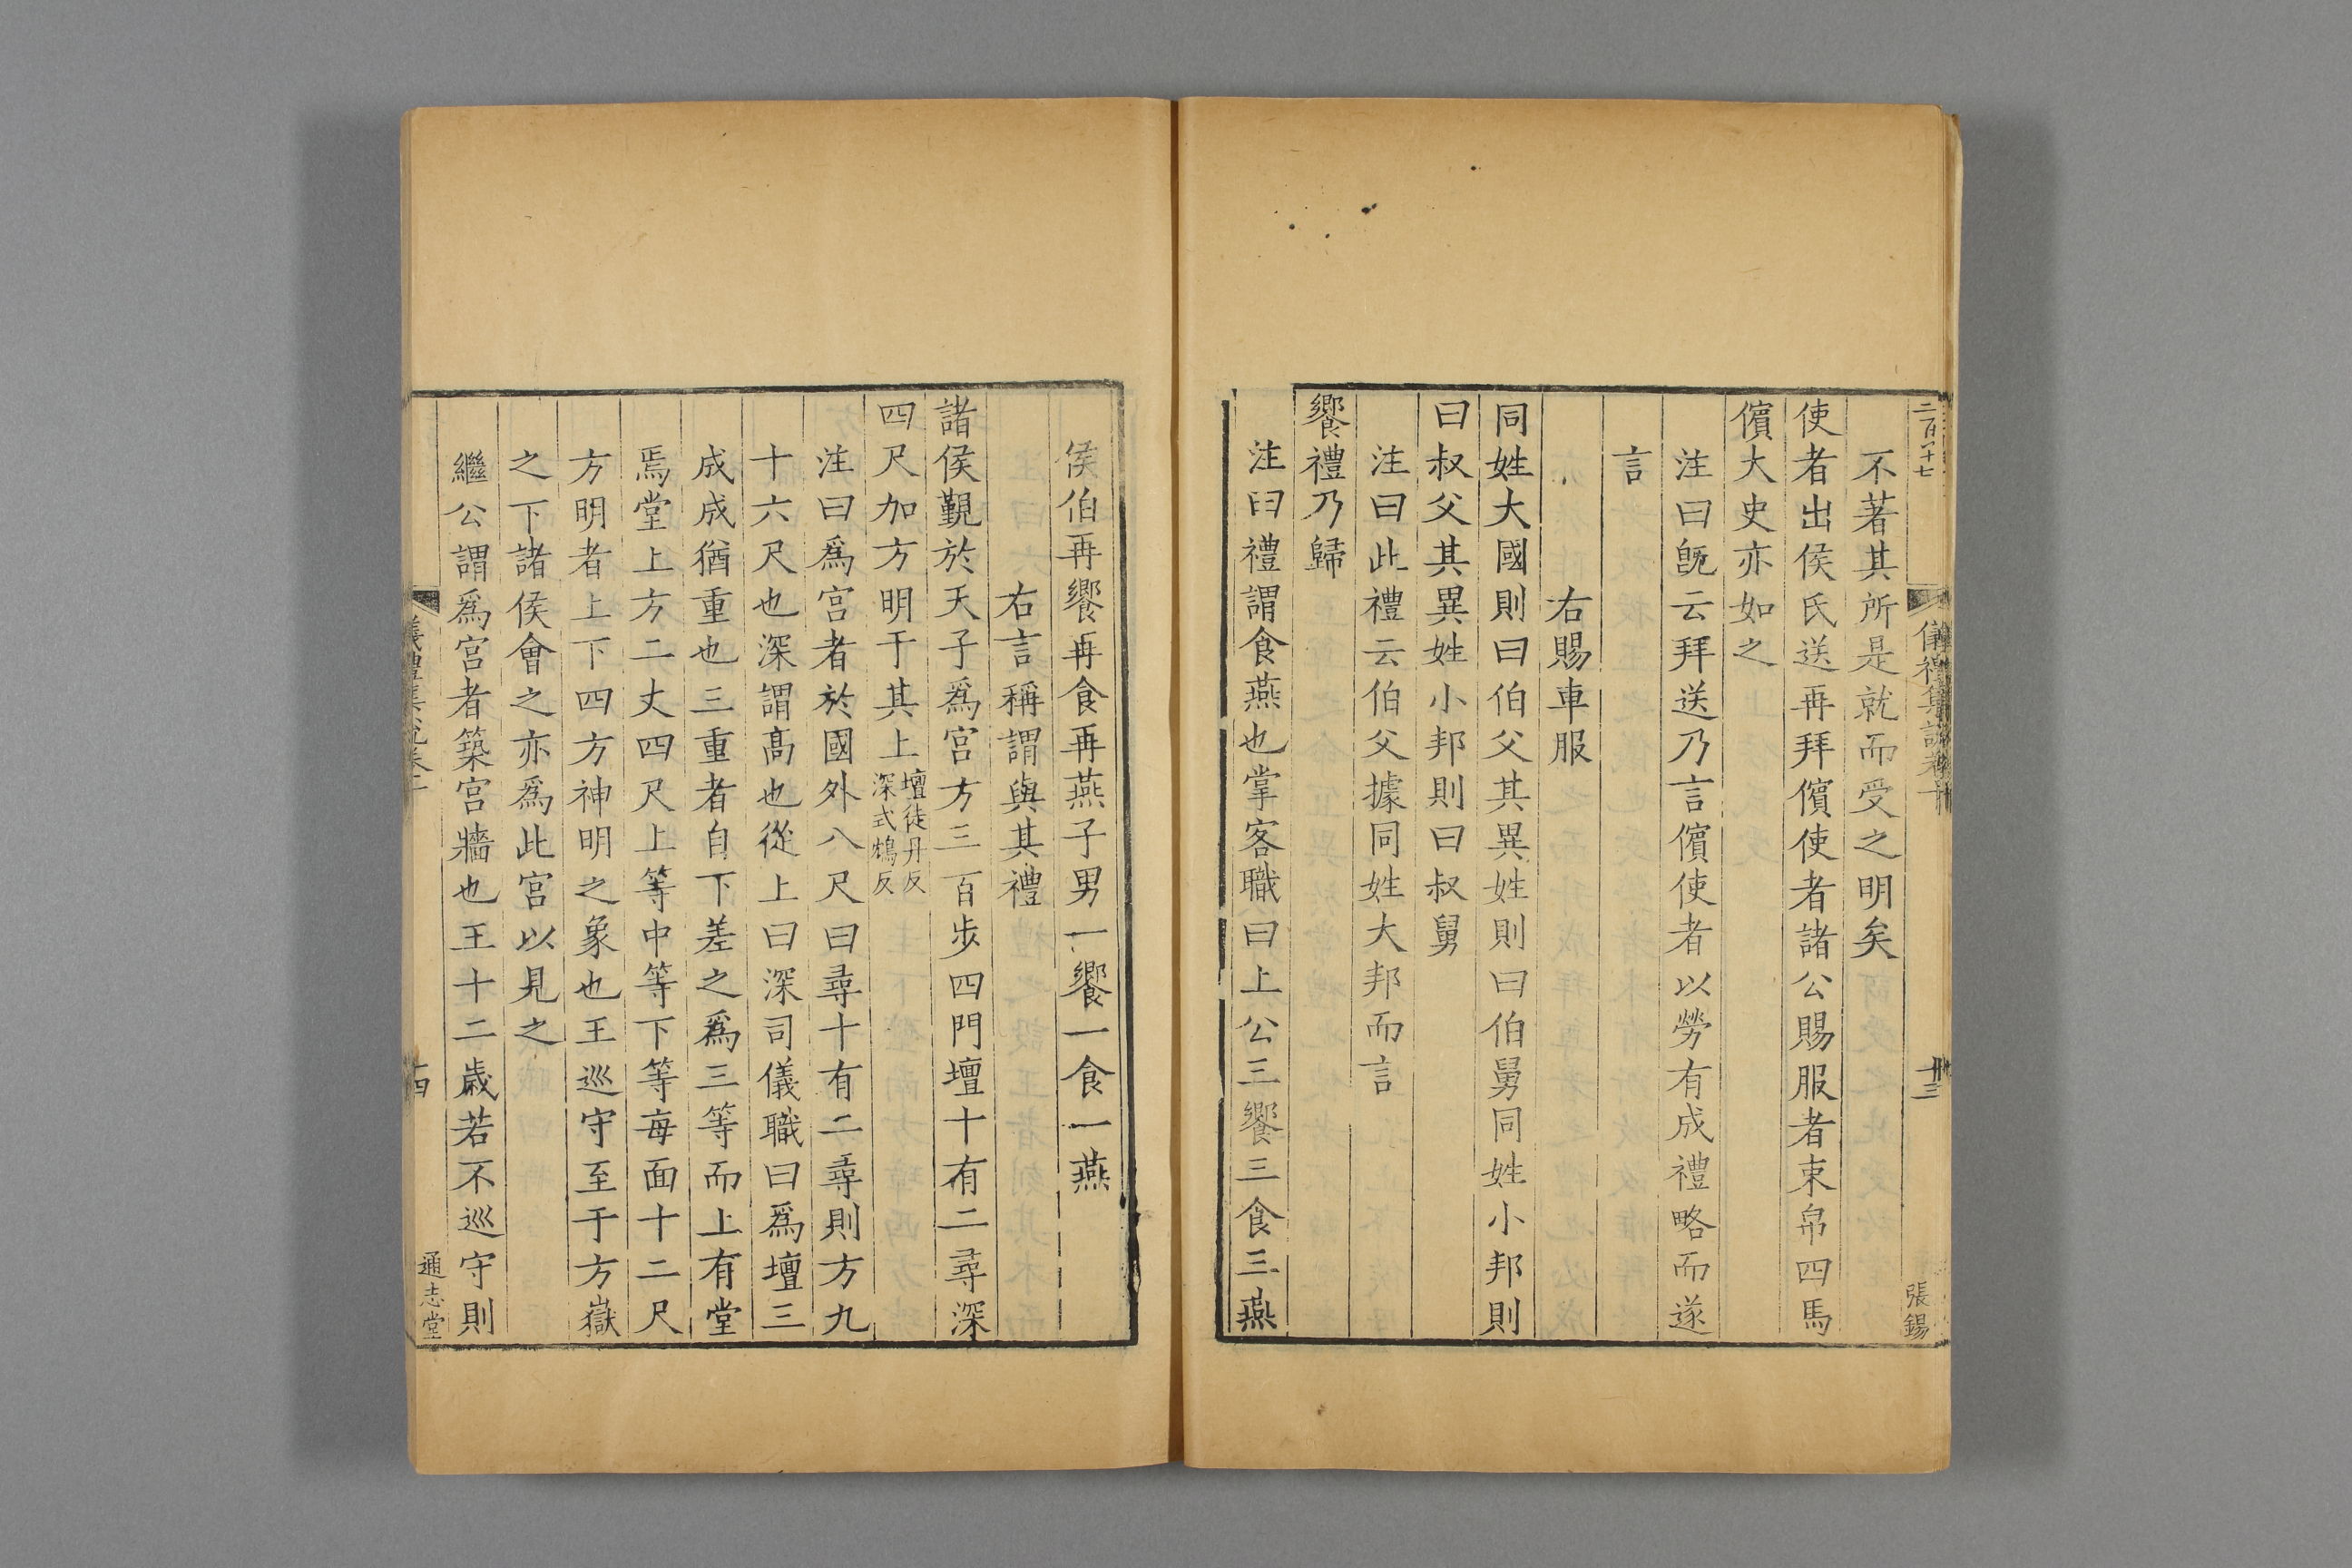 儀禮集說卷十
十三
張錫
不著其所是就而受之明矣
使者出侯氏送再拜儐使者諸公賜服者束帛四馬
儐大史亦如之
注曰旣云拜送乃言儐使者以勞有成禮略而遂
言
右賜車服
同姓大國則曰伯父其異姓則曰伯舅同姓小邦則
曰叔父其異姓小邦則曰叔舅
注曰此禮云伯父據同姓大邦而言
饗禮乃歸
注曰禮謂食燕也掌客職曰上公三饗三食三燕
侯伯再饗再食再燕子男一饗一食一燕
右言稱謂與其禮
諸侯覲於天子爲宮方三百步四門壇十有二尋深
四尺加方明于其上壇徒丹反深式鴆反
注曰爲宮者於國外八尺曰尋十有二尋則方九
十六尺也深謂高也從上曰深司儀職曰爲壇三
成成猶重也三重者自下差之爲三等而上有堂
焉堂上方二丈四尺上等中等下等每面十二尺
方明者上下四方神明之象也王巡守至于方嶽
之下諸侯會之亦爲此宮以見之
繼公謂爲宮者築宮牆也王十二歲若不巡守則
十四
通志堂